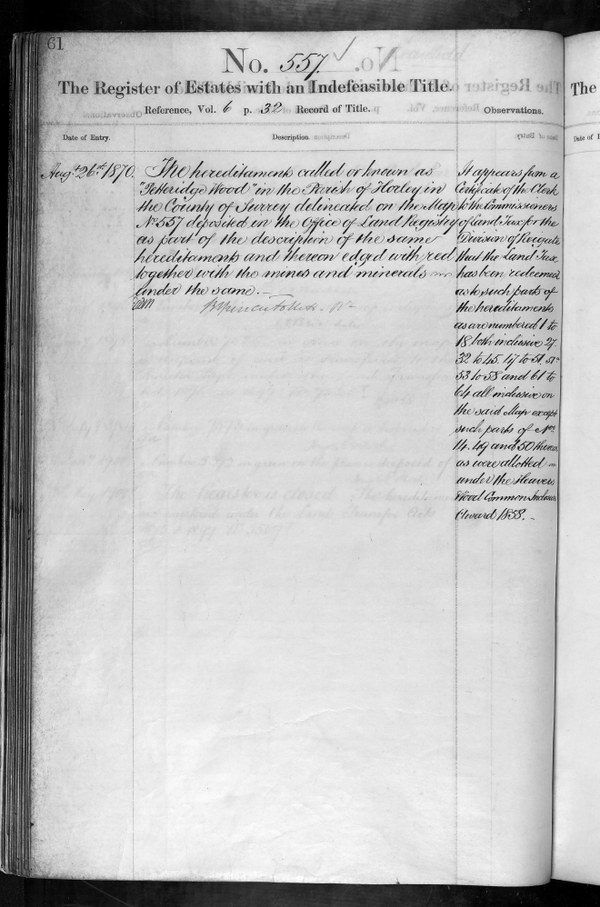 61
No. 557.
The Register of Estates with an Indefeasible Title.
Reference, Vol. 6 p. 32 Record of Title.
Observations.
Date of Entry.
Description.
Augt. 26th 1870.
The hereditaments called or known as
"Petteridge Wood" in the Parish of Horley in
the County of Surrey delineated on the Map
No. 557 deposited in the Office of Land Registry
as part of the description of the same
hereditaments and thereon edged with red
together with the mines and minerals
under the same.
It appears from a
Certificate of the Clerk
to the Commissioners
of Land Tax for the
Division of Reigate
that the Land Tax
has been redeemed
as to such parts of
the hereditaments
as are numbered 1 to
18 both inclusive 27
32 to 45. 47 to 51
53 to 58 and 61 to
64 all inclusive on
the said Map except
such parts of Nos.
14. 49 and 50 thereon
as were allotted
under the
Wood Common Inclosure
Award 1858.
The
Date of E